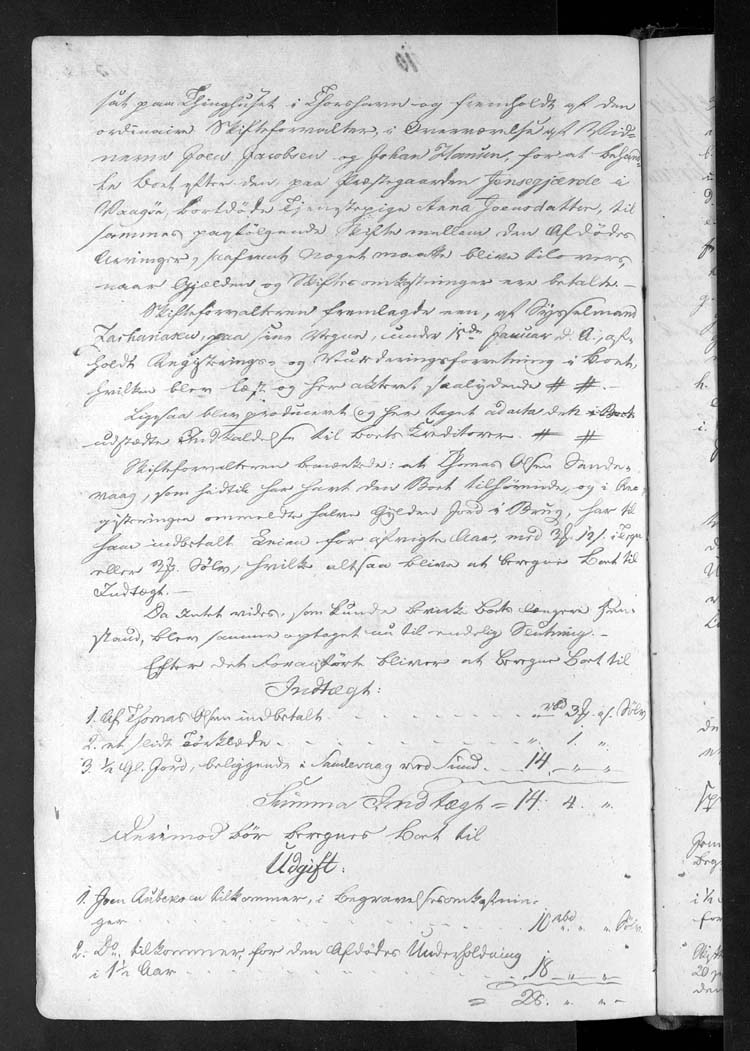 sat paa Thinghuset i Thorshavn og fremholdt af den
ordinaire Skifteforvalter, i Overværelse af Vid-
nerne Joen Jacobsen og Johan Hansen, for at behand-
le Boet efter den paa Præstegaarden Jensegjærde i
Vaagøe, bortdøde Tjenestepige Anna Joensdatter, til
sammes paafølgende Skifte mellem den Afdødes
Arvinger, saafremt Noget maatte blive tilovers,
naar Gjælden og Skiftesomkostninger ere betalte. –
Skifteforvalteren fremlagde een, af Sysselmand
Zachariasen, paa sine Vegne, under 15de Januar d. A., af-
holdt Registrerings- og Vurderingsforretning i Boet,
hvilken blev læst og her akteret saalydende # #. –
Ligesaa blev produceret og her taget ad acta den i Boet
udstædte Indkaldelse til Boets Creditorer. # #
Skifteforvalteren bemærkede: at Thomas Olsen Sande-
vaag, som hidtil har havt den Boet tilhørende, og i Re-
gistreringen ommeldte halve Gylden Jord i Brug, har til
ham indbetalt Leien for afvigte Aar, med 3 12 i Tegn
eller 3 Sølv, hvilke altsaa blive at beregne Boet til
Indtægt. –
Da Intet vides, som kunde bevirke Boets længere Hen-
stand, blev samme optaget nu til endelig Slutning. –
Efter det Foranførte bliver at beregne Boet til
Indtægt:
1. Af Thomas Olsen indbetalt " rbd 3 Sølv
2. et slidt Tørklæde " 1. "
3. ½ Gl. Jord, beliggende i Sandevaag ved Sund 14 " "
Summa Indtægt = 14. 4. "
Derimod bør beregnes Boet til
Udgift:
1. Joen tilkommer, i Begravelsesomkostnin-
ger 10 rbd " " Sølv
2. Do. tilkommer, for den Afdødes Underholdning
i 1½ Aar 18 " "
= 28. " "